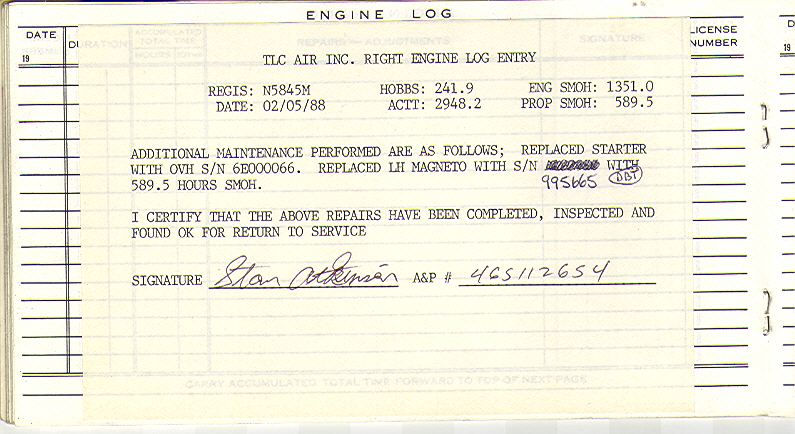 ENGINE LOG
DATE
19
LICENSE
NUMBER
D
19
TLC AIR INC. RIGHT ENGINE LOG ENTRY
REGIS: N5845M HOBBS: 241.9 ENG SMOH: 1351.0
DATE: 02/05/88 ACTT: 2948.2 PROP SMOH: 589.5
ADDITIONAL MAINTENANCE PERFORMED ARE AS FOLLOWS; REPLACED STARTER
WITH OVH S/N 6E000066. REPLACED LH MAGNETO WITH S/N WITH
995665 DBT
589.5 HOURS SMOH.
I CERTIFY THAT THE ABOVE REPAIRS HAVE BEEN COMPLETED, INSPECTED AND
FOUND OK FOR RETURN TO SERVICE
SIGNATURE Stan Atkinson A&P # 465112654
CARRY ACCUMULATED TOTAL TIME FORWARD TO TOP OF NEXT PAGE